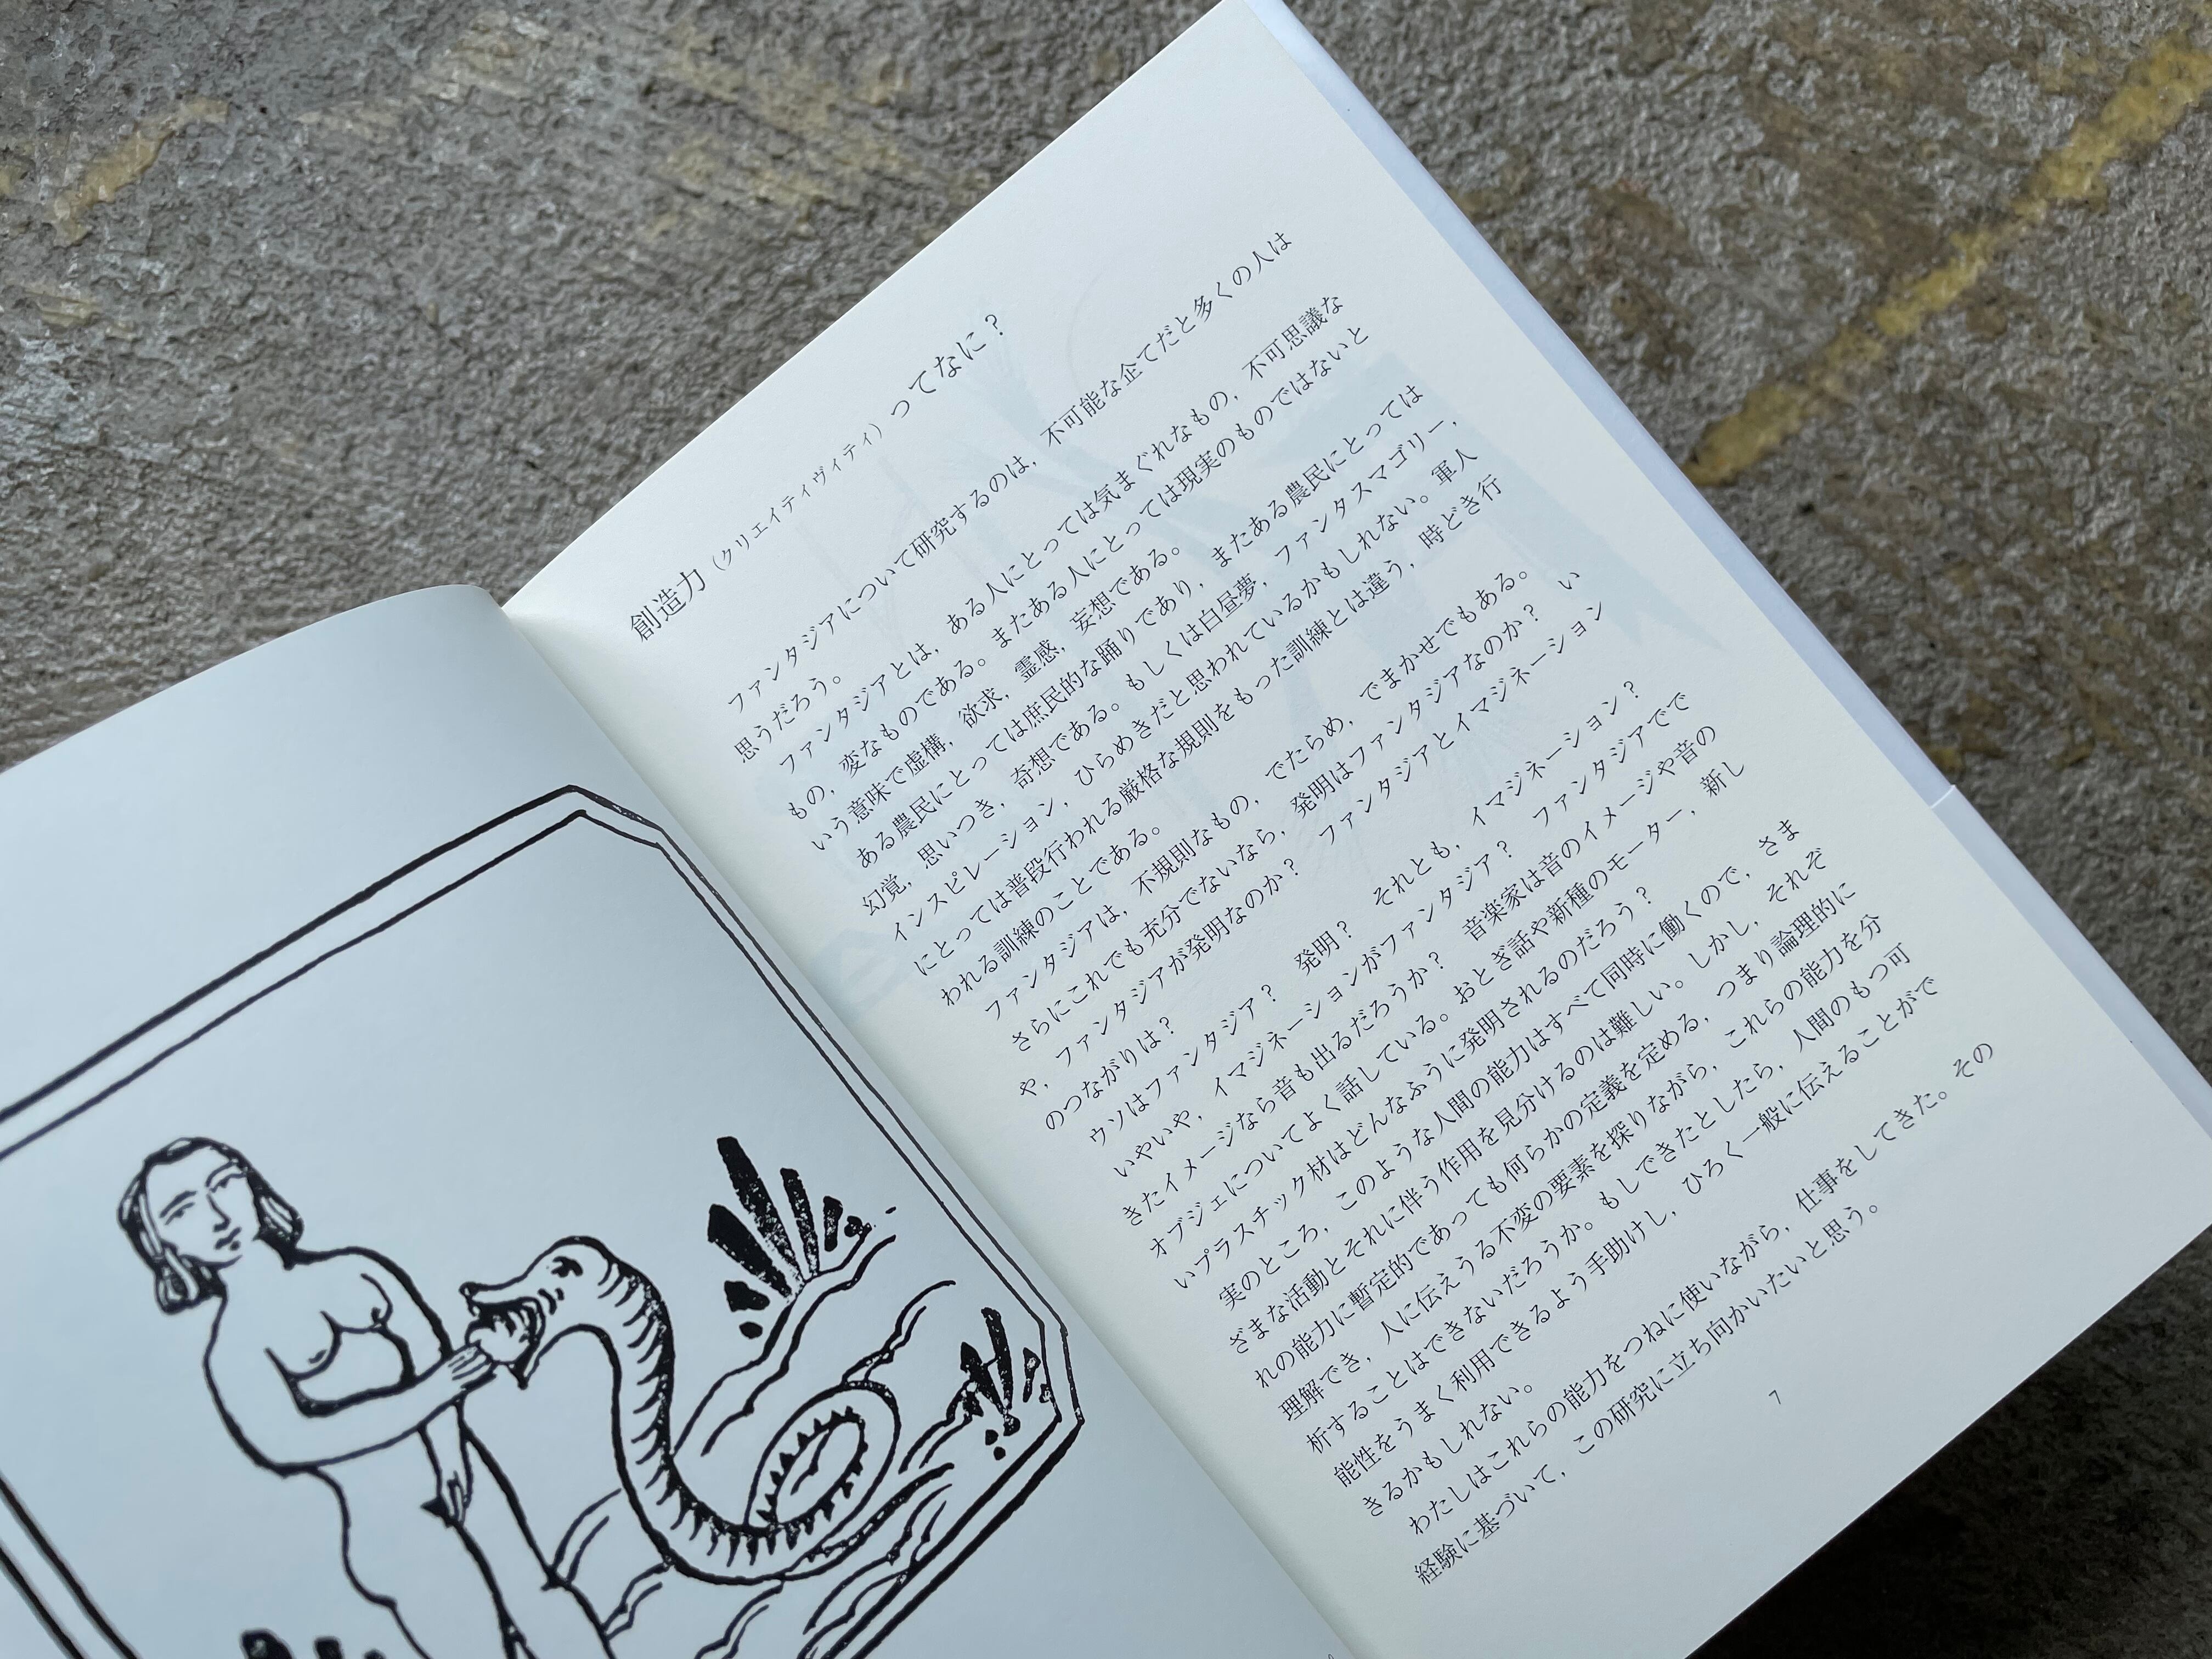 創造力（クリエイティヴィティ）ってなに？
ファンタジアについて研究するのは，不可能な企てだと多くの人は
思うだろう。
ファンタジアとは，ある人にとっては気まぐれなもの，不可思議な
もの，変なものである。またある人にとっては現実のものではないと
いう意味で虚構，欲求，霊感，妄想である。
ある農民にとっては庶民的な踊りであり，またある農民にとっては
幻覚，思いつき，奇想である。もしくは白昼夢，ファンタスマゴリー，
インスピレーション，ひらめきだと思われているかもしれない。軍人
にとっては普段行われる厳格な規則をもった訓練とは違う，時どき行
われる訓練のことである。
ファンタジアは，不規則なもの，でたらめ，でまかせでもある。
さらにこれでも充分でないなら，発明はファンタジアなのか？　い
や，ファンタジアが発明なのか？　ファンタジアとイマジネーション
のつながりは？
ウソはファンタジア？　発明？　それとも，イマジネーション？
いやいや，イマジネーションがファンタジア？　ファンタジアでで
きたイメージなら音も出るだろうか？　音楽家は音のイメージや音の
オブジェについてよく話している。おとぎ話や新種のモーター，新し
いプラスチック材はどんなふうに発明されるのだろう？
実のところ，このような人間の能力はすべて同時に働くので，さま
ざまな活動とそれに伴う作用を見分けるのは難しい。しかし，それぞ
れの能力に暫定的であっても何らかの定義を定める，つまり論理的に
理解でき，人に伝えうる不変の要素を探りながら，これらの能力を分
析することはできないだろうか。もしできたとしたら，人間のもつ可
能性をうまく利用できるよう手助けし，ひろく一般に伝えることがで
きるかもしれない。
わたしはこれらの能力をつねに使いながら，仕事をしてきた。その
経験に基づいて，この研究に立ち向かいたいと思う。
7